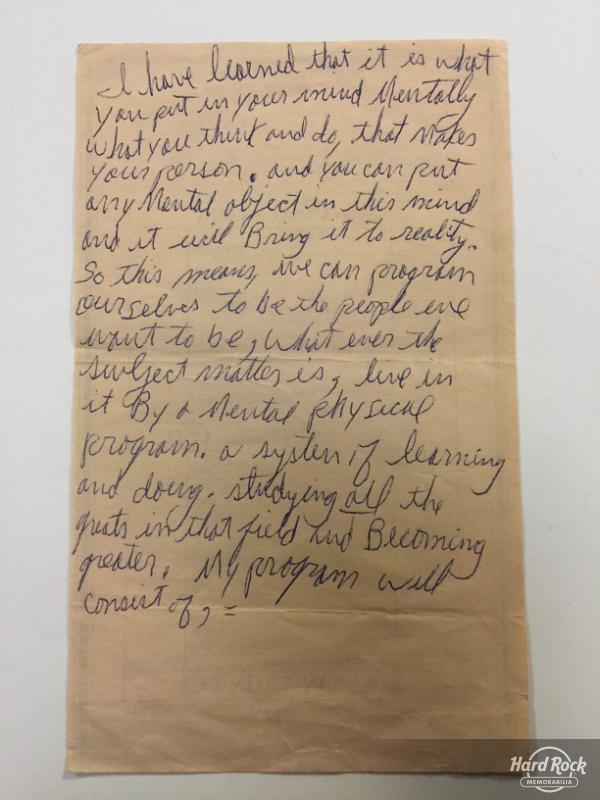 I have learned that it is what
you put in your mind Mentally
what you think and do, that makes
your person. and you can put
any Mental object in this mind
and it will Bring it to reality.
So this means, we can program
ourselves to be the people we
want to be, what ever the
subject matter is, live in
it By a Mental physical
program. a system of learning
and doing. studying all the
greats in that field and Becoming
greater. My program will
consist of, =
Hard Rock
MEMORABILIA